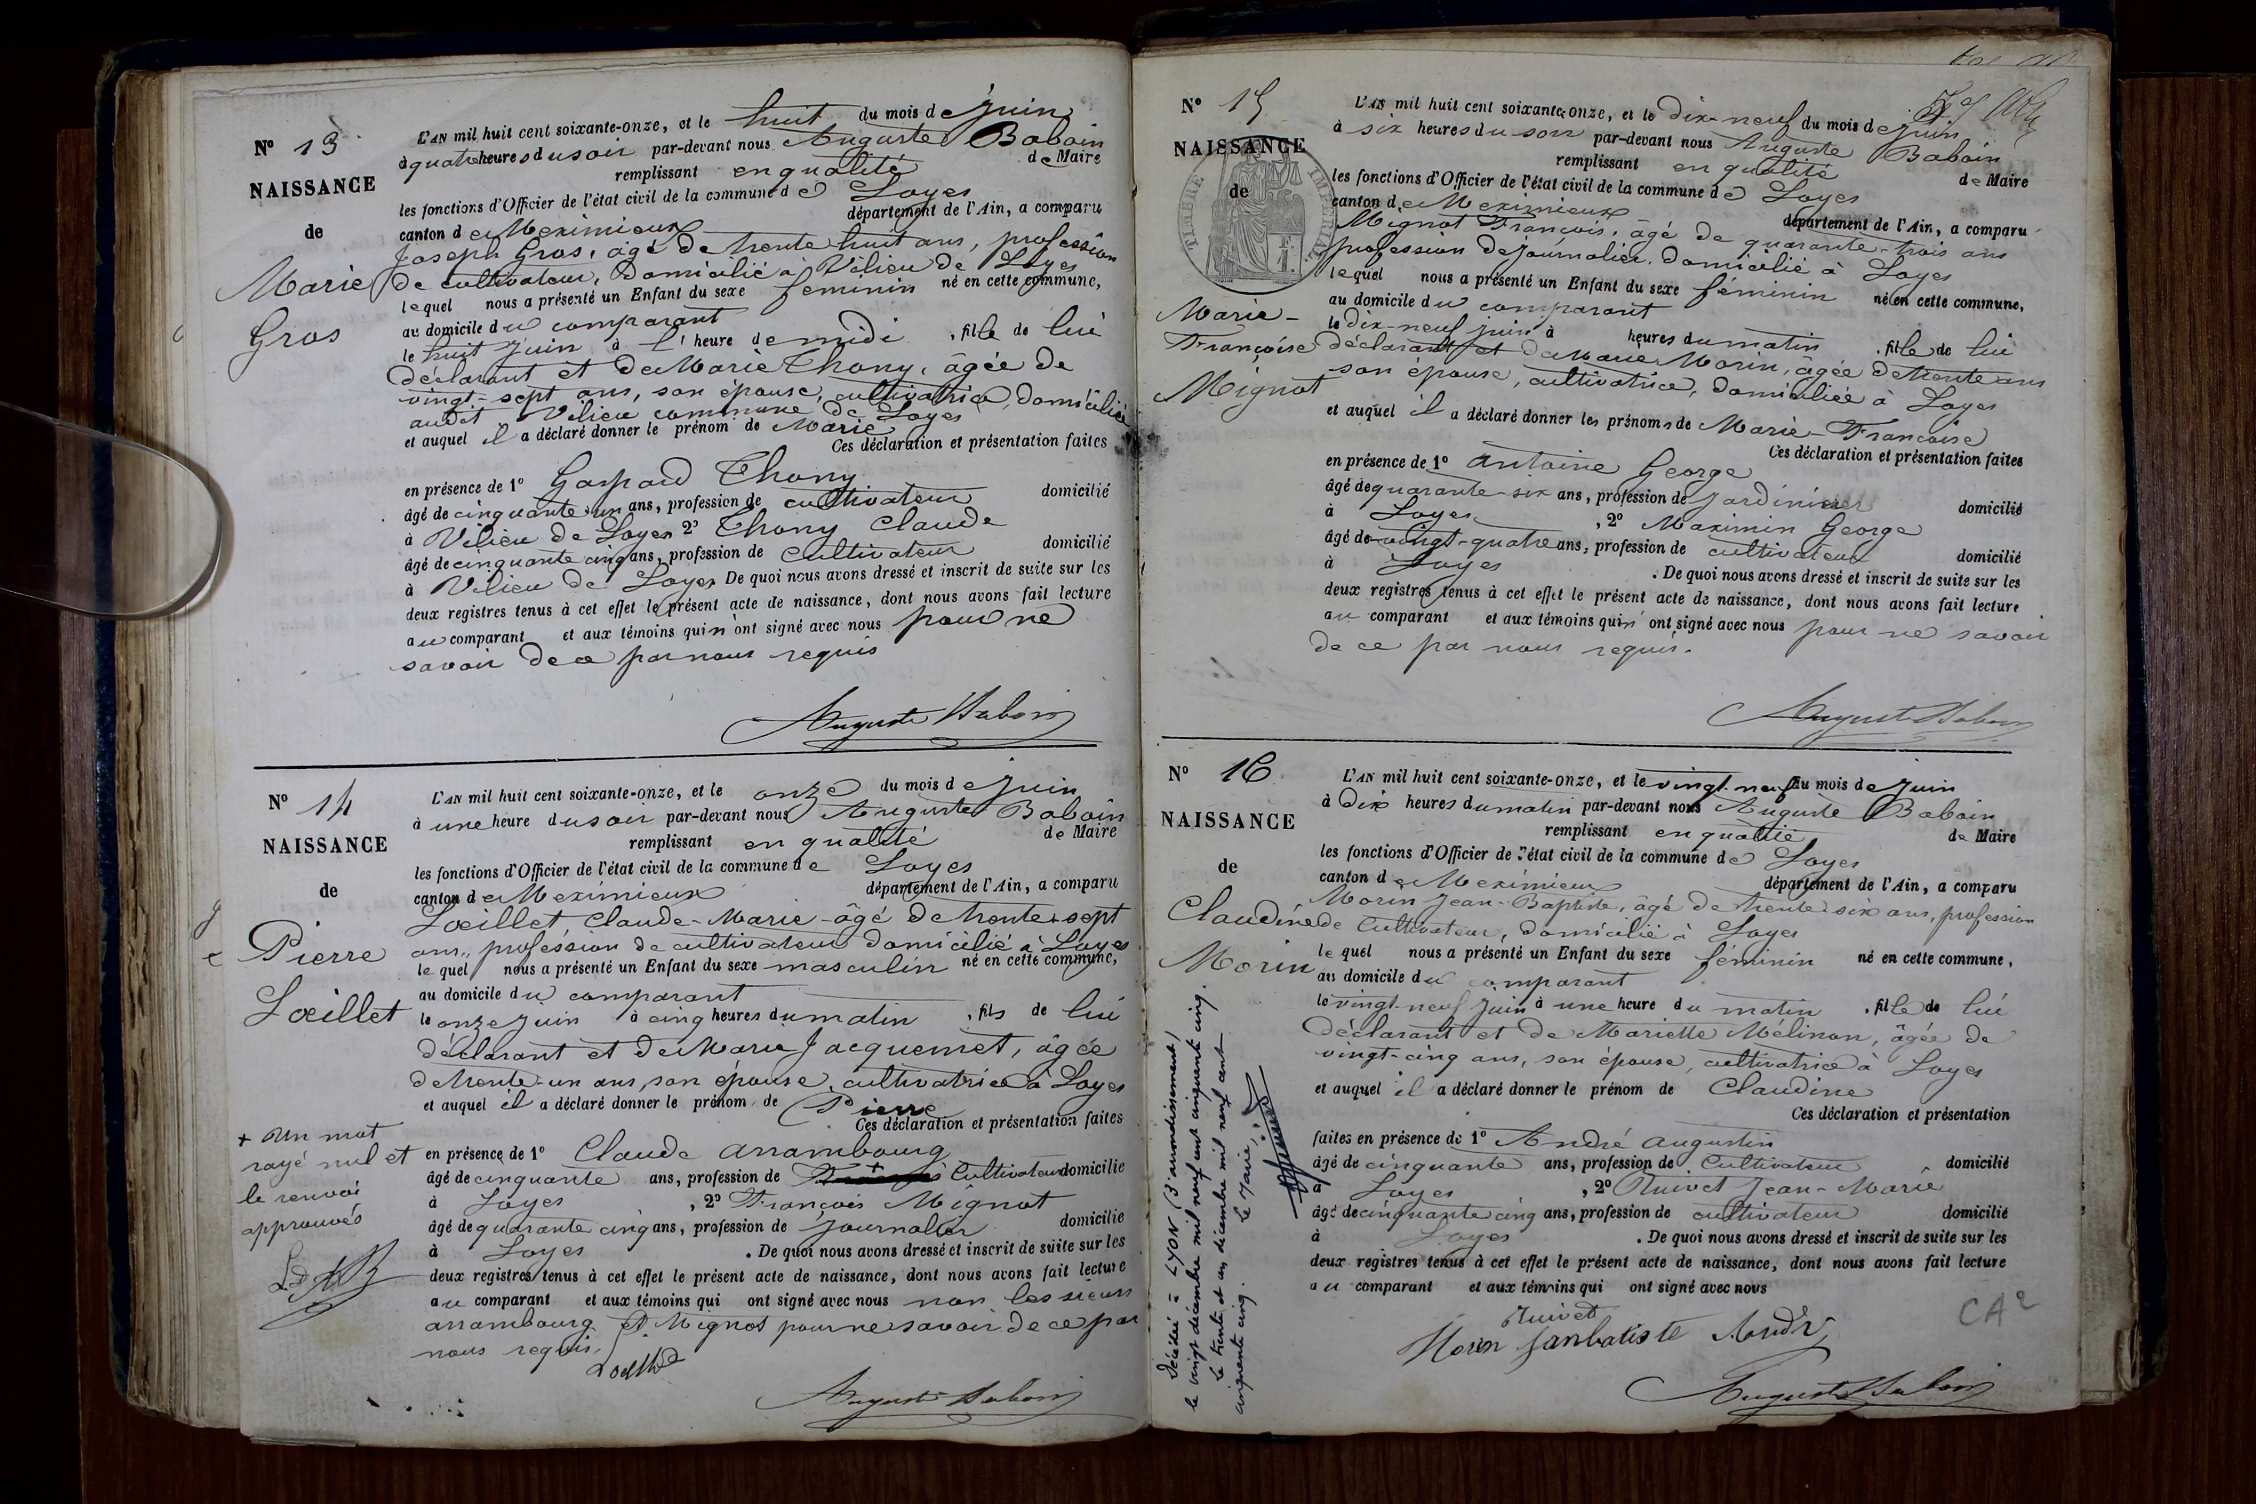 N° 13
NAISSANCE
de
Marie
Gros
L'AN mil huit cent soixante-onze, et le huit du mois de juin
à quatre heures du soir par-devant nous Auguste Baboin
remplissant en qualité de Maire
les fonctions d'Officier de l'état civil de la commune de Loyes
canton de Meximieux département de l'Ain, a comparu
Joseph Gros, âgé de trente huit ans, profession
de cultivateur, domicilié à Vilieu de Loyes
lequel nous a présenté un Enfant du sexe féminin né en cette commune,
au domicile du comparant
le huit juin à l'heure de midi , fille de lui
déclarant et de Marie Thony, âgée de
vingt-sept ans, son épouse, cultivatrice, domiciliée
audit Vilieu commune de Loyes
et auquel il a déclaré donner le prénom de Marie
Ces déclaration et présentation faites
en présence de 1° Gaspard Thony
âgé de cinquante un ans, profession de cultivateur domicilié
à Vilieu de Loyes 2° Thony Claude
âgé de cinquante cinq ans, profession de cultivateur domicilié
à Vilieu de Loyes De quoi nous avons dressé et inscrit de suite sur les
deux registres tenus à cet effet le présent acte de naissance, dont nous avons fait lecture
au comparant et aux témoins qui n'ont signé avec nous pour ne
savoir de ce par nous requis
Auguste Baboin
N° 14
NAISSANCE
de
Pierre
Lœillet
L'AN mil huit cent soixante-onze, et le onze du mois de juin
à une heure du soir par-devant nous Auguste Baboin
remplissant en qualité de Maire
les fonctions d'Officier de l'état civil de la commune de Loyes
canton de Meximieux département de l'Ain, a comparu
Lœillet Claude-Marie-âgé de trente-sept
ans, profession de cultivateur domicilié à Loyes
lequel nous a présenté un Enfant du sexe masculin né en cette commune,
au domicile du comparant
le onze juin à cinq heures du matin , fils de lui
déclarant et de Marie Jacquemet, âgée
de trente-un ans, son épouse, cultivatrice à Loyes
et auquel il a déclaré donner le prénom de Pierre
Ces déclaration et présentation faites
en présence de 1° Claude Arrambourg
âgé de cinquante ans, profession de + Cultivateur domicilié
à Loyes , 2° François Mignot
âgé de quarante cinq ans, profession de journalier domicilié
à Loyes . De quoi nous avons dressé et inscrit de suite sur les
deux registres tenus à cet effet le présent acte de naissance, dont nous avons fait lecture
au comparant et aux témoins qui ont signé avec nous non les sieurs
arrambourg et Mignot pour ne savoir de ce par
nous requis.
Auguste Baboin
+ Un mot
rayé nul et
le renvoi
approuvés
N° 15
NAISSANCE
de
TIMBRE IMPÉRIAL
Marie-
Françoise
Mignot
L'AN mil huit cent soixante-onze, et le dix-neuf du mois de juin
à six heures du soir par-devant nous Auguste Baboin
remplissant en qualité de Maire
les fonctions d'Officier de l'état civil de la commune de Loyes
canton de Meximieux département de l'Ain, a comparu
Mignot François, âgé de quarante-trois ans
profession de journalier domicilié à Loyes
lequel nous a présenté un Enfant du sexe féminin né en cette commune,
au domicile du comparant
le dix-neuf juin à heures du matin , fille de lui
déclarant et de Marie Morin, âgée de trente ans
son épouse, cultivatrice, domiciliée à Loyes
et auquel il a déclaré donner les prénoms de Marie-Françoise
Ces déclaration et présentation faites
en présence de 1° Antoine George
âgé de quarante-six ans, profession de jardinier domicilié
à Loyes , 2° Maximin George
âgé de vingt-quatre ans, profession de cultivateur domicilié
à Loyes . De quoi nous avons dressé et inscrit de suite sur les
deux registres tenus à cet effet le présent acte de naissance, dont nous avons fait lecture
au comparant et aux témoins qui n'ont signé avec nous pour ne savoir
de ce par nous requis.
Auguste Baboin
N° 16
NAISSANCE
de
Claudine
Morin
L'AN mil huit cent soixante-onze, et le vingt-neuf du mois de juin
à dix heures du matin par-devant nous Auguste Baboin
remplissant en qualité de Maire
les fonctions d'Officier de l'état civil de la commune de Loyes
canton de Meximieux département de l'Ain, a comparu
Morin Jean-Baptiste, âgé de trente-six ans, profession
de Cultivateur, domicilié à Loyes
lequel nous a présenté un Enfant du sexe féminin né en cette commune,
au domicile du comparant
le vingt-neuf juin à une heure du matin , fille de lui
déclarant et de Mariette Mélinon, âgée de
vingt-cinq ans, son épouse, cultivatrice à Loyes
et auquel il a déclaré donner le prénom de Claudine
Ces déclaration et présentation
faites en présence de 1° André Augustin
âgé de cinquante ans, profession de Cultivateur domicilié
à Loyes , 2° Ruivet Jean-Marie
âgé de cinquante cinq ans, profession de cultivateur domicilié
à Loyes . De quoi nous avons dressé et inscrit de suite sur les
deux registres tenus à cet effet le présent acte de naissance, dont nous avons fait lecture
au comparant et aux témoins qui ont signé avec nous
Ruivet
Morin Janbatiste André
Auguste Baboin
CA2
Décédée à LYON (3e arrondissement)
le vingt décembre mil neuf cent cinquante cinq.
Le trente et un décembre mil neuf cent
cinquante cinq. Le Maire,